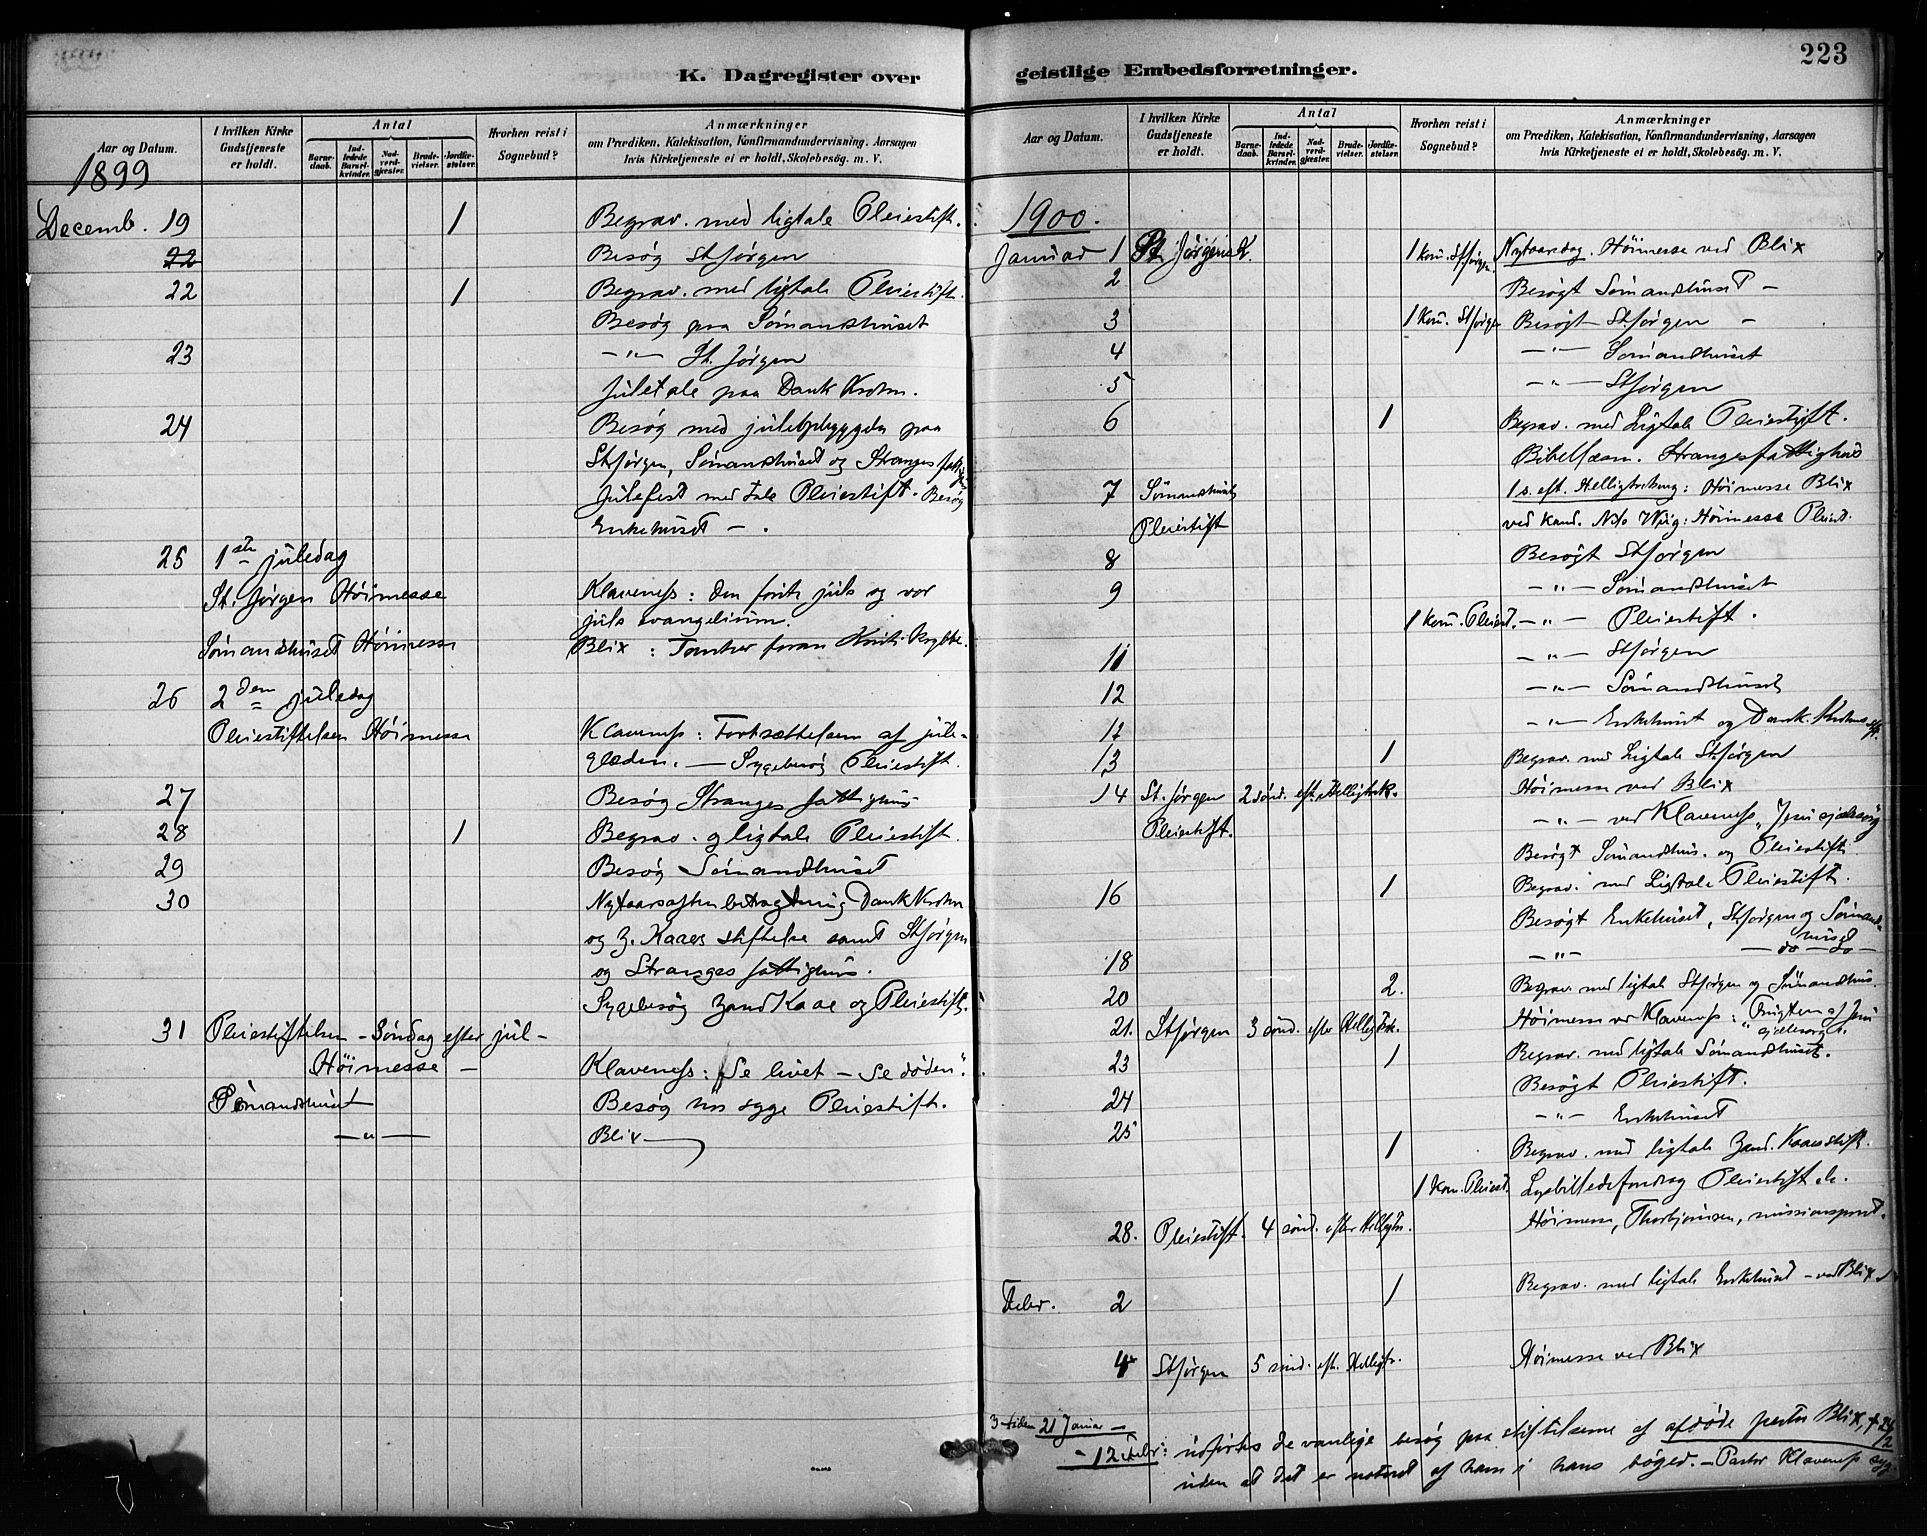 K. Dagregister over
Aar og Datum.
I hvilken Kirke Gudstjeneste er holdt.
Antal
Barnedaab.
Indledede Barselkvinder.
Nadverdgjæster.
Brudevielser.
Jordfæstelser.
Hvorhen reist i Sognebud?
Anmærkninger
om Prædiken, Katekisation, Konfirmandundervisning, Aarsagen
hvis Kirketjeneste ei er holdt, Skolebesøg. m. V.
1899
Decemb. 19 1 Begrav. med ligtale Pleiestift.
22 Besøg St Jørgen
22 1 Begrav. med ligtale Pleiestift.
Besøg paa Sømandshuset
23 —"— St. Jørgen
Juletale paa Dank Krohn.
24 Besøg med paa
St Jørgen, Sømandshuset og Stranges
Julefest med tale Pleiestift. Besøg
Enkehuset — .
25 1ste juledag
St. Jørgen Høimesse Klaveness: Den første jul og vor
juls evangelium.
Sømandshuset Høimesse Blix : Tanker foran Kristi Krybbe.
26 2den juledag
Pleiestiftelsen Høimesse Klaveness: Fortsættelsen af jule-
glæden. — Sygebesøg Pleiestift.
27 Besøg Stranges fattighus
28 1 Begrav. og ligtale Pleiestift.
29 Besøg Sømandshuset
30 Nytaarsaftenbetragtning Dank Krohn
og Z. Kaaes stiftelse samt St Jørgen
og Stranges fattighus.
Sygebesøg Zand Kaae og Pleiestift.
31 Pleiestiftelsen – Søndag efter jul –
Høimesse – Klaveness: Se livet – Se døden".
Sømandshuset Besøg hos syge Pleiestift.
—"— Blix
223
geistlige Embedsforretninger.
Aar og Datum.
I hvilken Kirke Gudstjeneste er holdt.
Antal
Barnedaab.
Indledede Barselkvinder.
Nadverdgjæster.
Brudevielser.
Jordfæstelser.
Hvorhen reist i Sognebud?
Anmærkninger
om Prædiken, Katekisation, Konfirmandundervisning, Aarsagen
hvis Kirketjeneste ei er holdt, Skolebesøg. m. V.
1900.
Januar 1 St. Jørgens K. 1 kom. St Jørgen. Nytaarsdag. Høimesse ved Blix
2 Besøgt Sømandshuset –
3 1 Kom. St Jørgen Besøgt St Jørgen –
4 —"— Sømandshuset
5 —"— St Jørgen
6 1 Begrav. med Ligtale Pleiestift.
Bibellæsn. Stranges fattighus
7 Sømandshuset 1 s. eft. Helligtrekong: Høimesse Blix
Pleiestift ved Kand. Høimesse Pleiest.
8 Besøgt St Jørgen
9 —"— Sømandshuset
1 kom. Pleiest. —"— Pleiestift.
11 —"— St Jørgen
12 —"— Sømandshuset
12 —"— Enkehuset og Dank. Krohns
13 1 Begrav. med Ligtale St Jørgen
14 St. Jørgen 2 sønd. eft. Helligtrek. Høimesse ved Blix
Pleiestift. —"— ved Klaveness „Jesu sjælesorg
Besøgt Sømandshus. og Pleiestift.
16 1 Begrav. med Ligtale Pleiestift.
Besøgt Enkehuset, St Jørgen og Sømands-
huset
18 —"— — do — do —
20 2. Begrav. med ligtale St Jørgen og Sømandshus.
21. St Jørgen 3 sønd. efter Helligtrk. Høimesse ved Klaveness: „Frugten af Jesu
sjælesorg".
23 1 Begrav. med ligtale Sømandshuset.
Besøgt Pleiestift.
24 —"— Enkehuset
25 1 Begrav. med ligtale Zand. Kaaes stift.
1 kom. Pleiest. Lysbilledeforedrag Pleiestift.
28. Pleiestift. 4 sønd. efter Helligtr. Høimesse, Thorbjørnsen, missionsprest.
Febr. 2 1 Begrav. med ligtale Enkehuset – ved Blix
4 St Jørgen 5 sønd. eft. Helligtr. Høimesse ved Blix
tiden 21 Januar —
– 12 Febr: udførtes de vanlige besøg paa stiftelserne af afdøde pastor Blix, † 24/2
uden at det er noteret af ham i hans bøger. – Pastor Klaveness syg